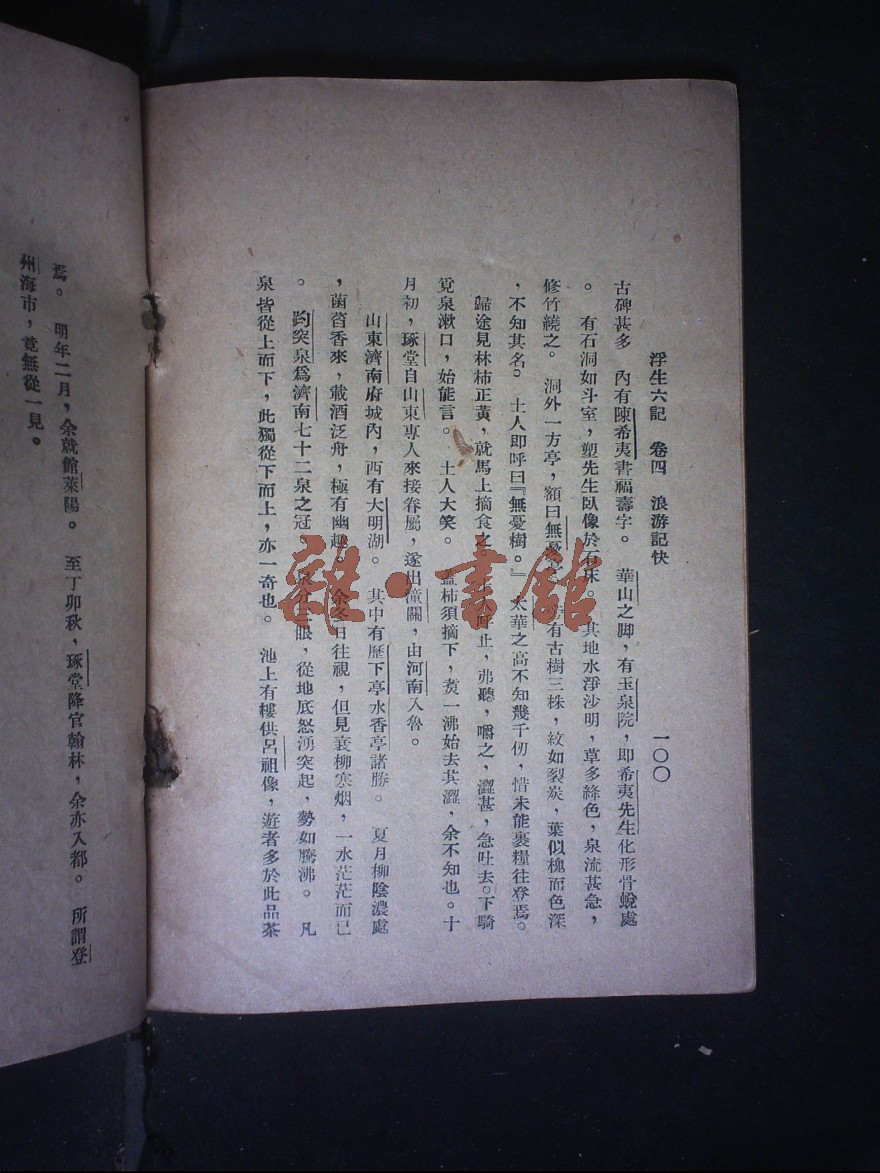 浮生六記　卷四　浪游記快　一〇〇
古碑甚多　內有陳希夷書福壽字。　華山之脚，有玉泉院，即希夷先生化形骨蛻處
。　有石洞如斗室，塑先生臥像於石床。其地水淨沙明，草多絳色，泉流甚急，
修竹繞之。　洞外一方亭，額曰無憂　有古樹三株，紋如裂炭，葉似槐而色深
，不知其名。　土人即呼曰『無憂樹。』太華之高不知幾千仞，惜未能裹糧往登焉。
歸途見林柿正黃，就馬上摘食之。　止，弗聽，嚼之，澀甚，急吐去。下騎
覓泉漱口，始能言。　土人大笑。　蓋柿須摘下，煑一沸始去其澀，余不知也。十
月初，琢堂自山東專人來接眷屬，遂出潼關，由河南入魯。
山東濟南府城內，西有大明湖。　其中有歷下亭水香亭諸勝。　夏月柳陰濃處
，菡萏香來，載酒泛舟，極有幽趣。　余冬日往視，但見衰柳寒烟，一水茫茫而已
。　趵突泉爲濟南七十二泉之冠。　泉分三眼，從地底怒湧突起，勢如騰沸。　凡
泉皆從上而下，此獨從下而上，亦一奇也。　池上有樓供呂祖像，遊者多於此品茶
焉。　明年二月，余就館萊陽。　至丁卯秋，琢堂降官翰林，余亦入都。　所謂登
州海市，竟無從一見。
雜·書館